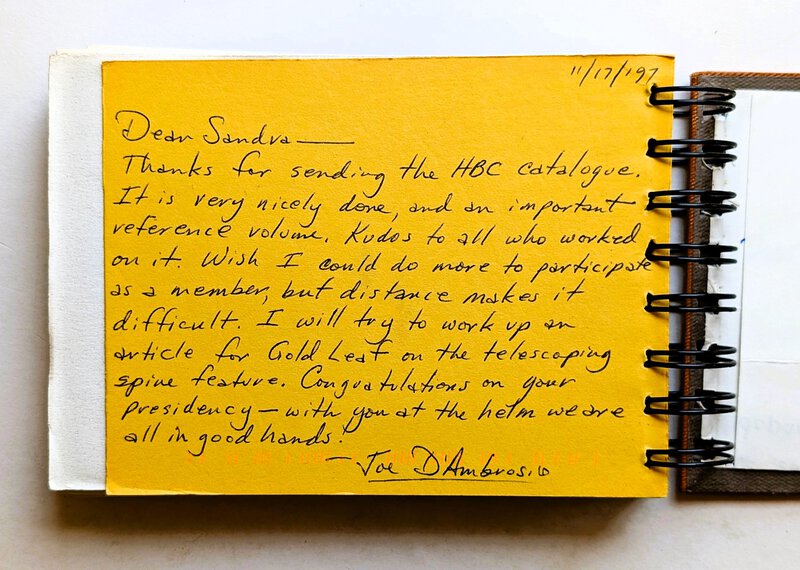 11/17/'97
Dear Sandra —
Thanks for sending the HBC catalogue.
It is very nicely done, and an important
reference volume. Kudos to all who worked
on it. Wish I could do more to participate
as a member, but distance makes it
difficult. I will try to work up an
article for Gold Leaf on the telescoping
spine feature. Congratulations on your
presidency — with you at the helm we are
all in good hands!
— Joe D'Ambrosio